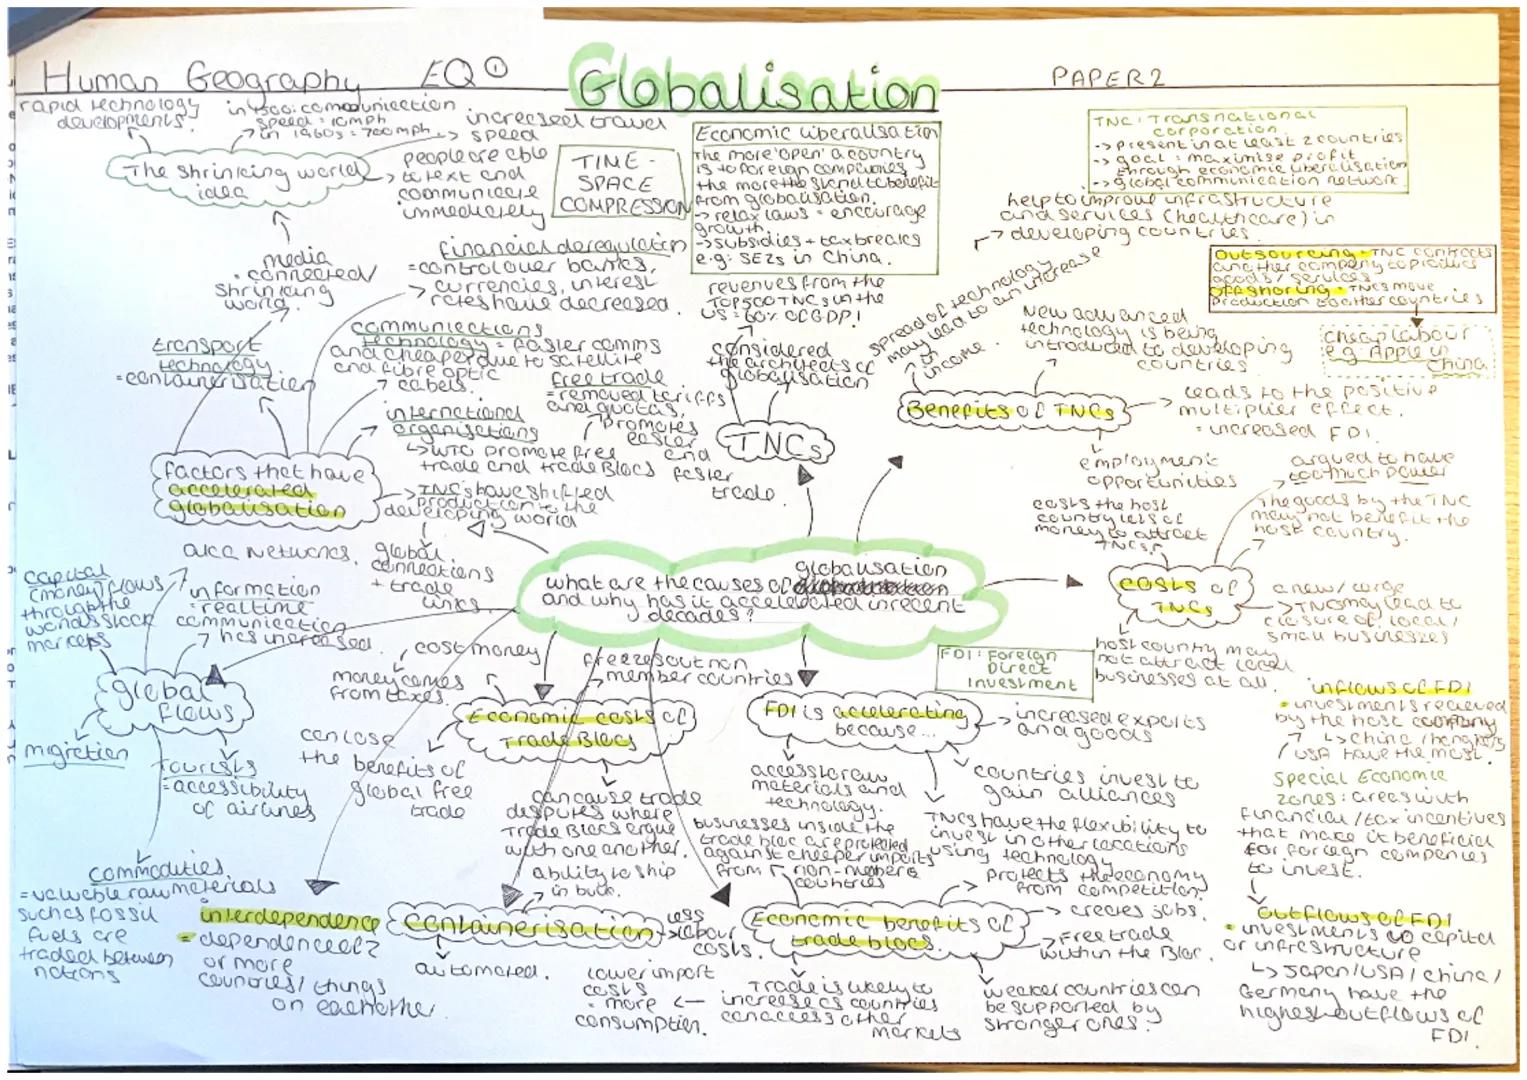 Human Geography EQ①
Globalisation
PAPER 2
rapid technology
developments.
in 1500: communication
speed = 10mph
in 1960s = 700mph
increased travel
speed
The shrinking world
idea
people are able
to text and
communicate
immediately
TIME -
SPACE
COMPRESSION
Economic liberalisation
The more 'open' a country
is to foreign companies
the more the stand to benefit
from globalisation.
→ relax laws = encourage
growth.
→ subsidies + tax breaks
e.g: SEZs in China.
TNC: Transnational
corporation.
→ present in at least 2 countries
→ goal: maximise profit
through economic liberalisation
→ global communication network
help to improve infrastructure
and services (healthcare) in
developing countries.
Outsourcing - TNC contracts
another company to produce
goods/ services
Offshoring - TNCs move
production to other countries
cheap labour
e.g. Apple in
China
media
connected/
shrinking
world.
financial deregulation
= control over banks,
currencies, interest
rates have decreased.
transport
technology
= containerisation
communications
technology = faster comms
and cheaper due to satellite
and fibre optic
cabels.
free trade
= removed tariffs
and quotas.
promotes
easier
and
faster
trade.
international
organisations
↳ WTO promote free
trade and trade blocs
factors that have
accelerated
globalisation
TNC's have shifted
production to the
developing world
global
connections
+ trade
links
revenues from the
TOP 500 TNCs in the
US = 60% of GDP!
considered
the architects of
globalisation
TNCs
spread of technology
may lead to an increase
in
income.
New advanced
technology is being
introduced to developing
countries
Benefits of TNCs
leads to the positive
multiplier effect.
= increased FDI.
employment
opportunities
argued to have
too much power
costs the host
country lots of
money to attract
TNCs
The goods by the TNC
may not benefit the
host country.
costs of
TNCs
a new/ large
TNC may lead to
closure of local/
small businesses
host country may
not attract local
businesses at all.
what are the causes of globalisation
and why has it accelerated in recent
decades?
aka Networks.
capital
(money) flows
through the
worlds stock
markets
information
= realtime
communication
has increased.
global
flows
migration
tourists
= accessibility
of airlines
commodities.
= valuable raw materials
such as fossil
fuels are
traded between
nations
cost money
money comes
from taxes.
freezes out non
member countries
Economic costs of
Trade Blocs
can lose
the benefits of
global free
trade
can cause trade
disputes where
Trade Blocs argue
with one another.
FDI: Foreign
Direct
Investment
FDI is accelerating
because...
increased exports
and goods
access to raw
materials and
technology.
countries invest to
gain alliances
TNCs have the flexibility to
invest in other locations
using technology
inflows of FDI
• investments recieved
by the host company
↳ China/ hong kong/
USA have the most.
Special Economic
Zones: areas with
financial/tax incentives
that make it beneficial
for foreign companies
to invest.
outflows of FDI
• investments to capital
or infrastructure
↳ Japan/USA/China/
Germany have the
highest outflows of
FDI.
interdependence
= dependence of 2
or more
countries/ things
on eachother.
ability to ship
in bulk.
containerisation
less
labour
costs.
automated.
lower import
costs
= more
consumption.
businesses inside the
trade bloc are protected
against cheaper imports
from non-members
countries
protects the economy
from competition
creates jobs.
Economic benefits of
trade blocs.
Free trade
within the Bloc.
Trade is likely to
increase as countries
can access other
markets
weaker countries can
be supported by
stronger ones.